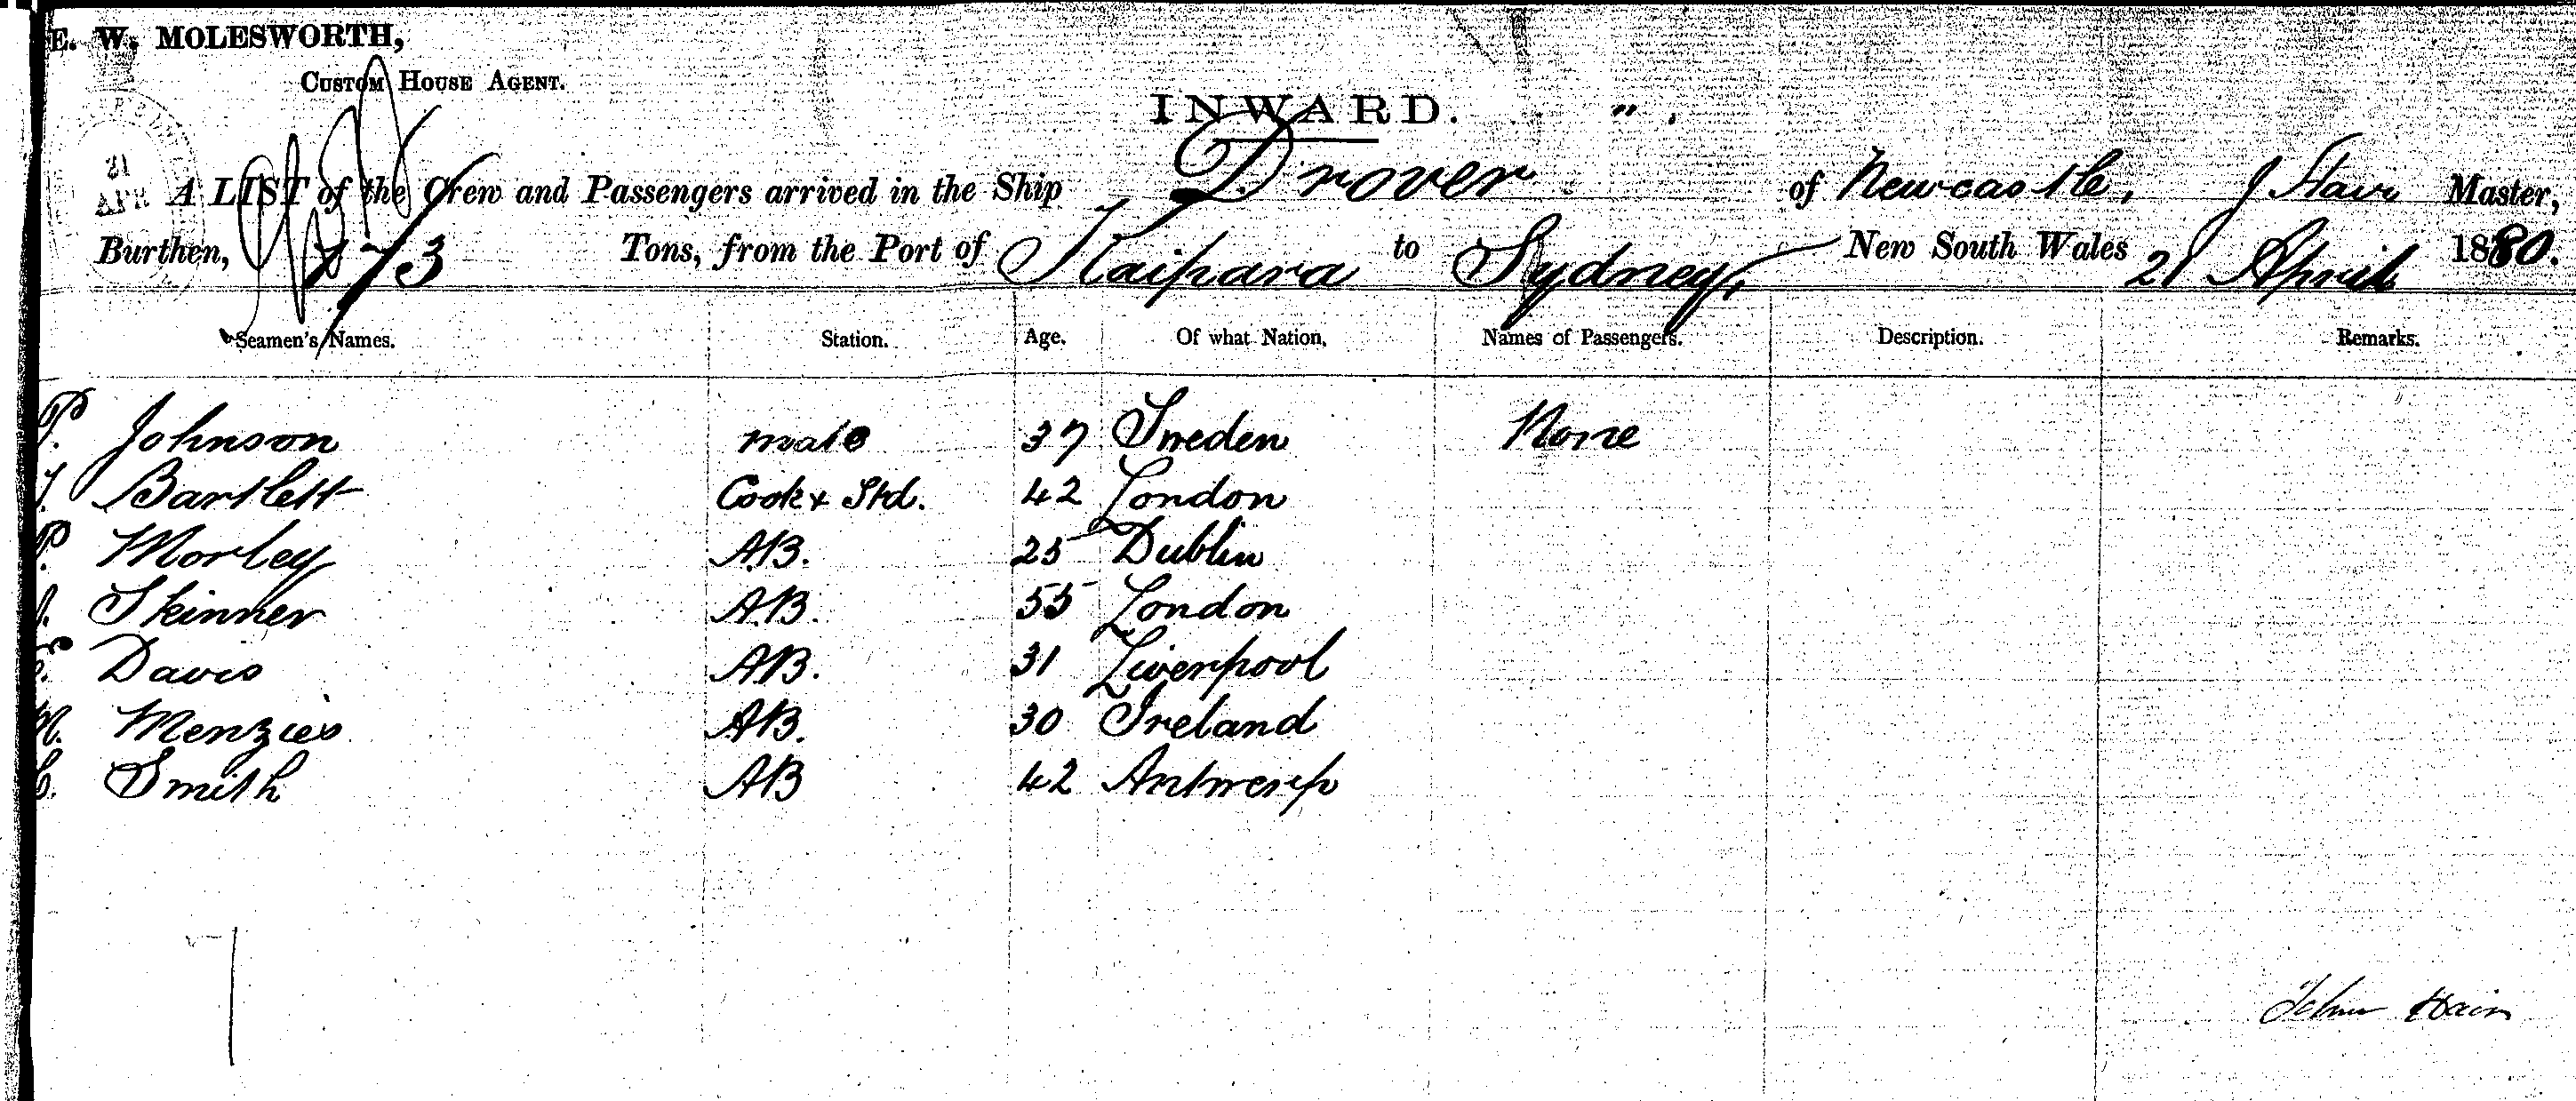 E. W. MOLESWORTH,
CUSTOM HOUSE AGENT.
INWARD.
21
APR
A LIST of the Crew and Passengers arrived in the Ship Drover of Newcastle, J Hain Master,
Burthen, 173 Tons, from the Port of Kaipara to Sydney, New South Wales 21 April 1880.
Seamen's Names. Station. Age. Of what Nation. Names of Passengers. Description. Remarks.
P. Johnson mate 37 Sweden None
Bartlett Cook & Std. 42 London
P. Morley AB. 25 Dublin
Skinner AB. 55 London
Davis AB. 31 Liverpool
Menzies AB. 30 Ireland
C. Smith AB 42 Antwerp
John Hain